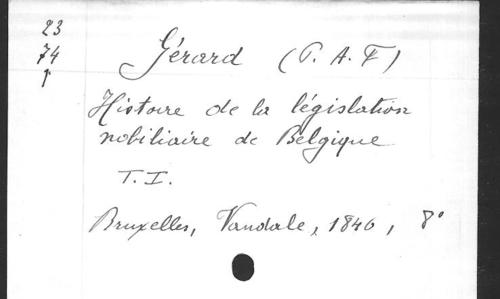 23
74
1
Gérard (P. A. F)
Histoire de la législation
nobiliaire de Belgique
T. I.
Bruxelles, Vandale, 1846, 8°